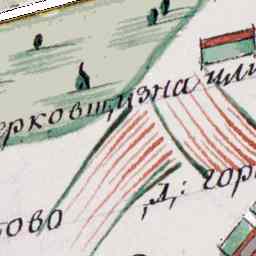 ерковщизна или
Д: гор
тово